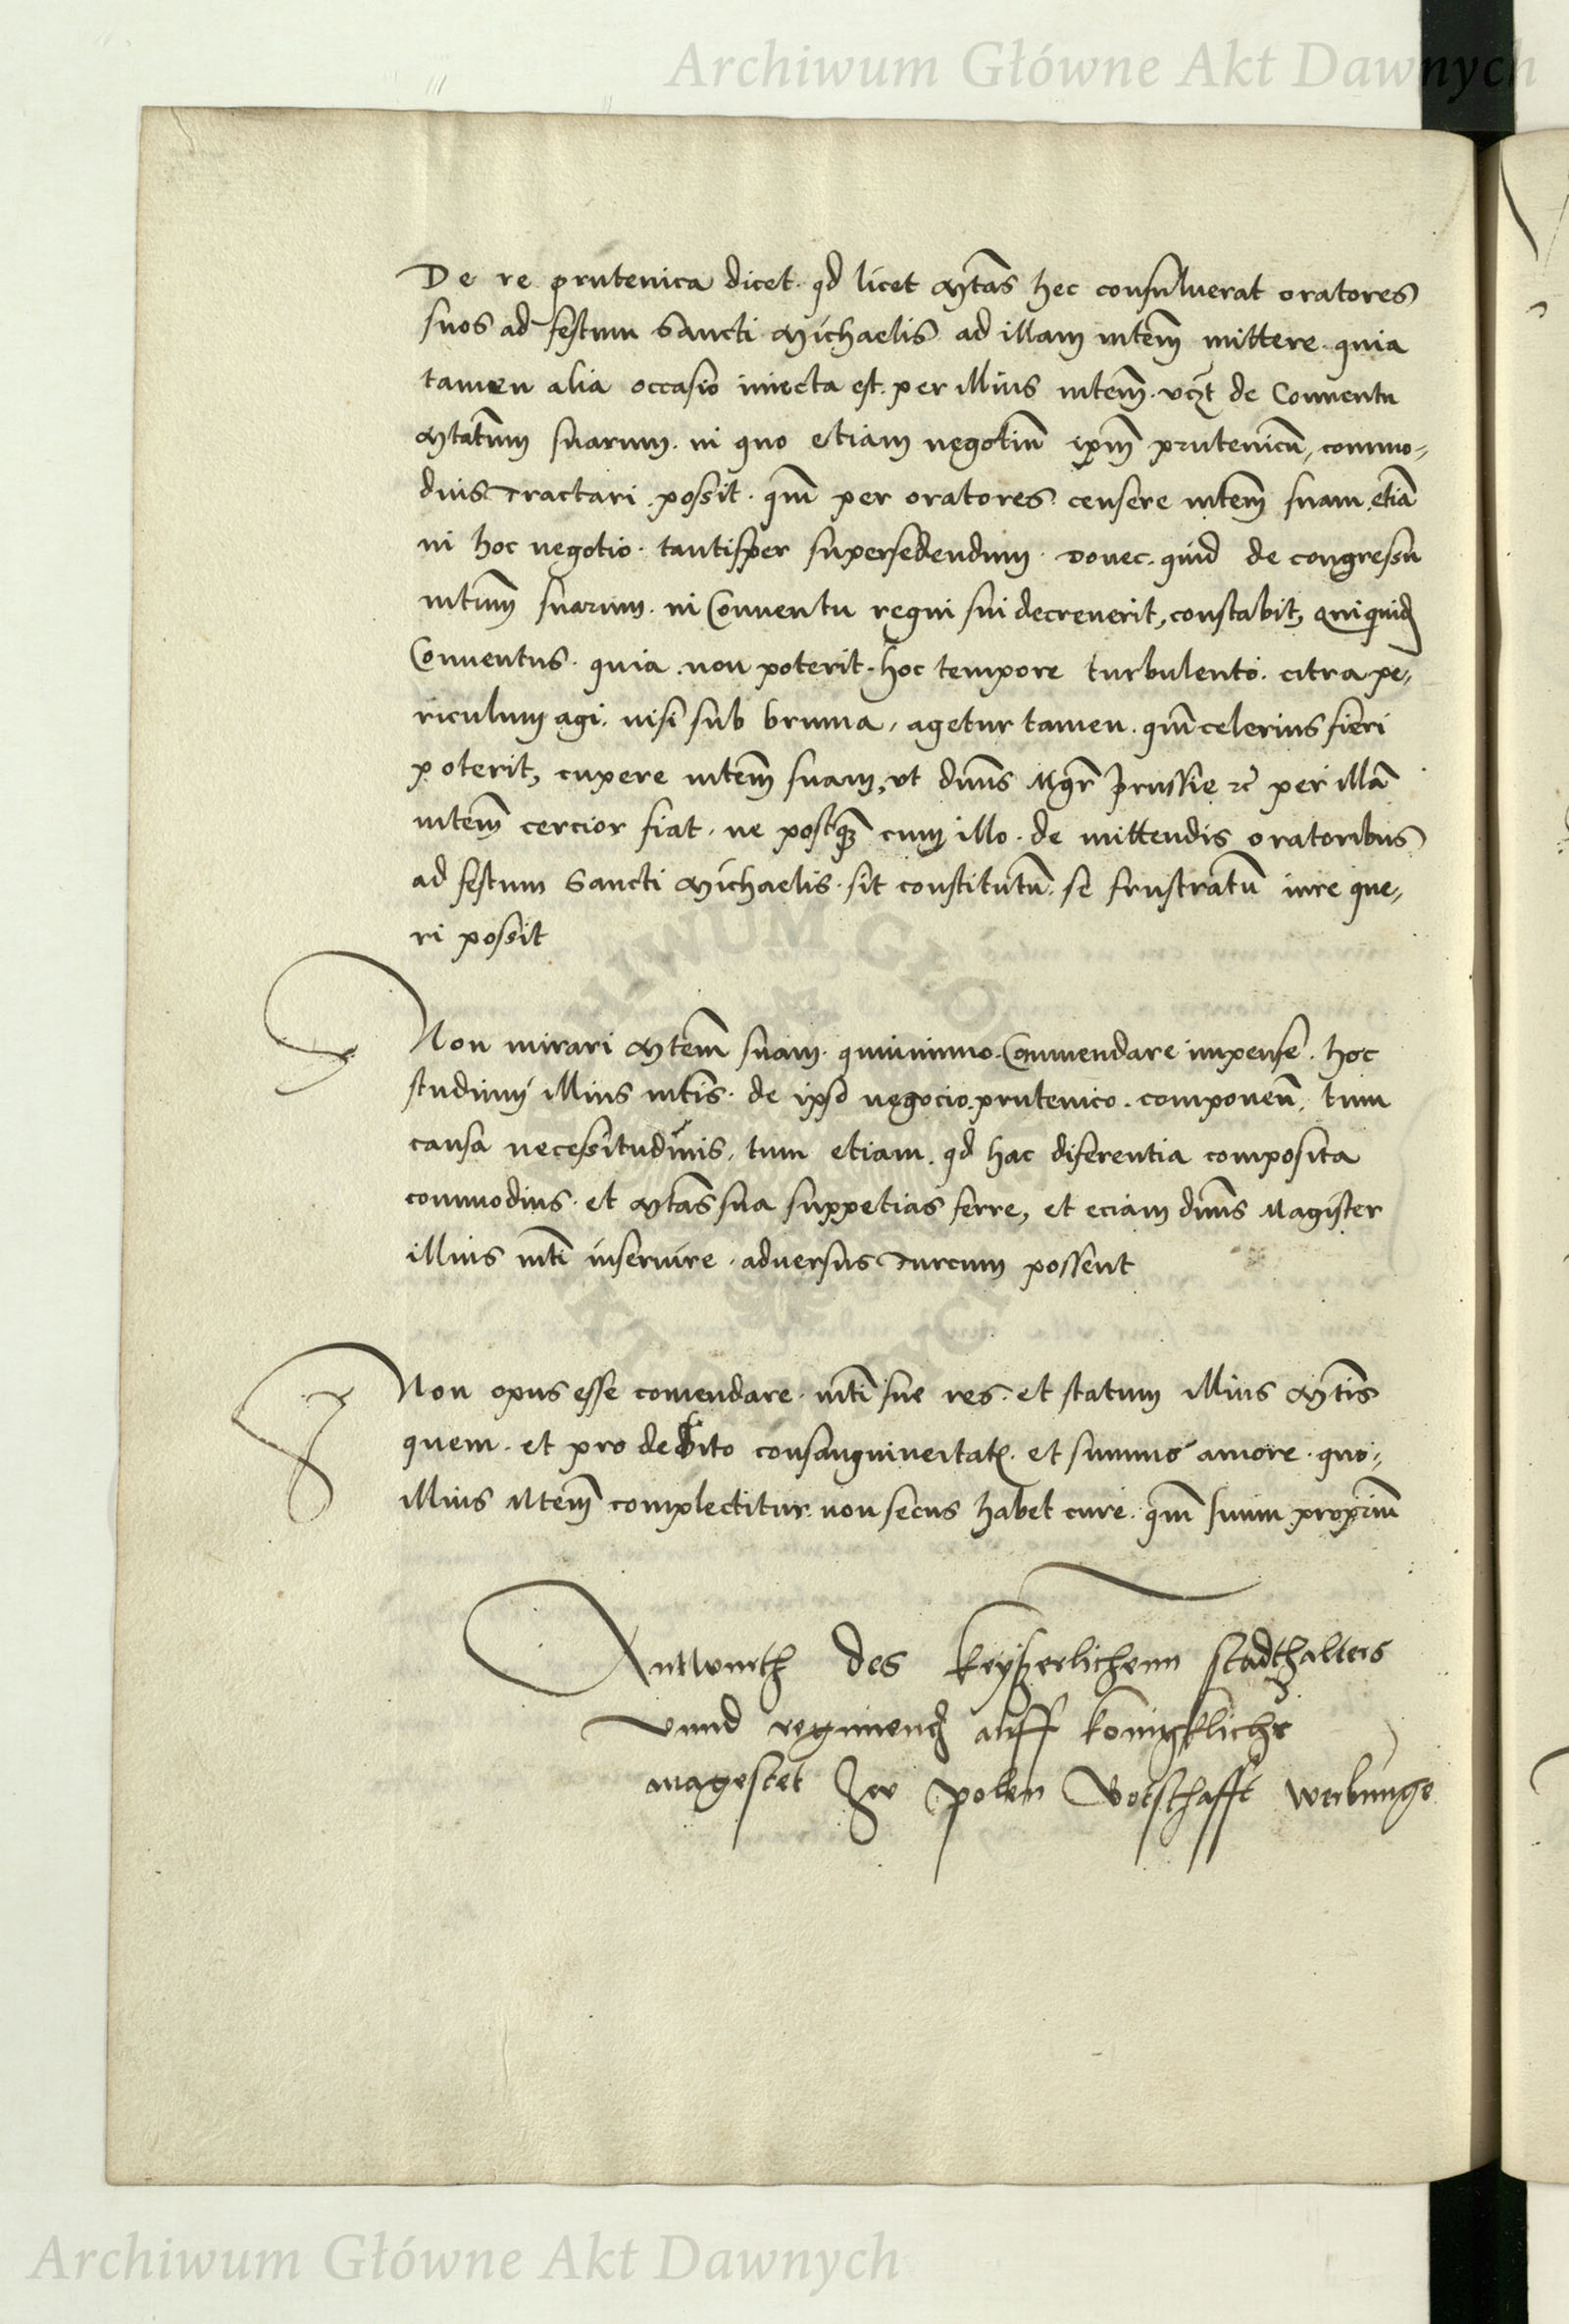 Archiwum Główne Akt Dawnych
De re prutenica dicet. qd licet Mtas hec consuluerat oratores
suos ad festum Sancti Michaelis ad illam mtem mittere. quia
tamen alia occasio iniecta est. per illius mtem. vczt de Conuentu
Mtatum suarum. in quo etiam negotiũ ipm prutenicũ, commo-
dius Tractari possit. qm̃ per oratores censere mtem suam etiã
in hoc negotio. tantisper supersedendum. donec. quid de congressu
mtum suarum. in Conuentu regni sui decreuerit, constabit,
Conuentus. quia non poterit. hoc tempore turbulento. citra pe-
riculum agi. nisi sub bruma, agetur tamen. qm̃ celerius fieri
poterit, cupere mtem suam, vt dnus Mgr Prussie etc per illã
mtem cercior fiat. ne postqz cum illo. de mittendis oratoribus
ad festum Sancti Michaelis. sit constitutũ. se frustratũ iure que-
ri possit
Non mirari Mtem suam. quinimmo. Commendare impense. hoc
studium illius mtis. de ipso negocio prutenico. componen. tum
causa necessitudinis. tum etiam. qd hac diferentia composita
commodius. et Mtas sua suppetias ferre, et eciam dnus Magister
illius mti inseruire. aduersus Turcum possent
Non opus esse comendare. mti sue res. et statum illius Mtis
quem. et pro debito consanguineitatis. et summo amore. quo-
illius Mtem complectitur. non secus habet cure. qm̃ suum propriũ
Antwurth des keyßerlichenn stadthalters
vnnd regimend auff konigkliche
magestet zw polen Botschafft werbunge
ARCHIWUM GŁÓWNE
AKT DAWNYCH
Archiwum Główne Akt Dawnych